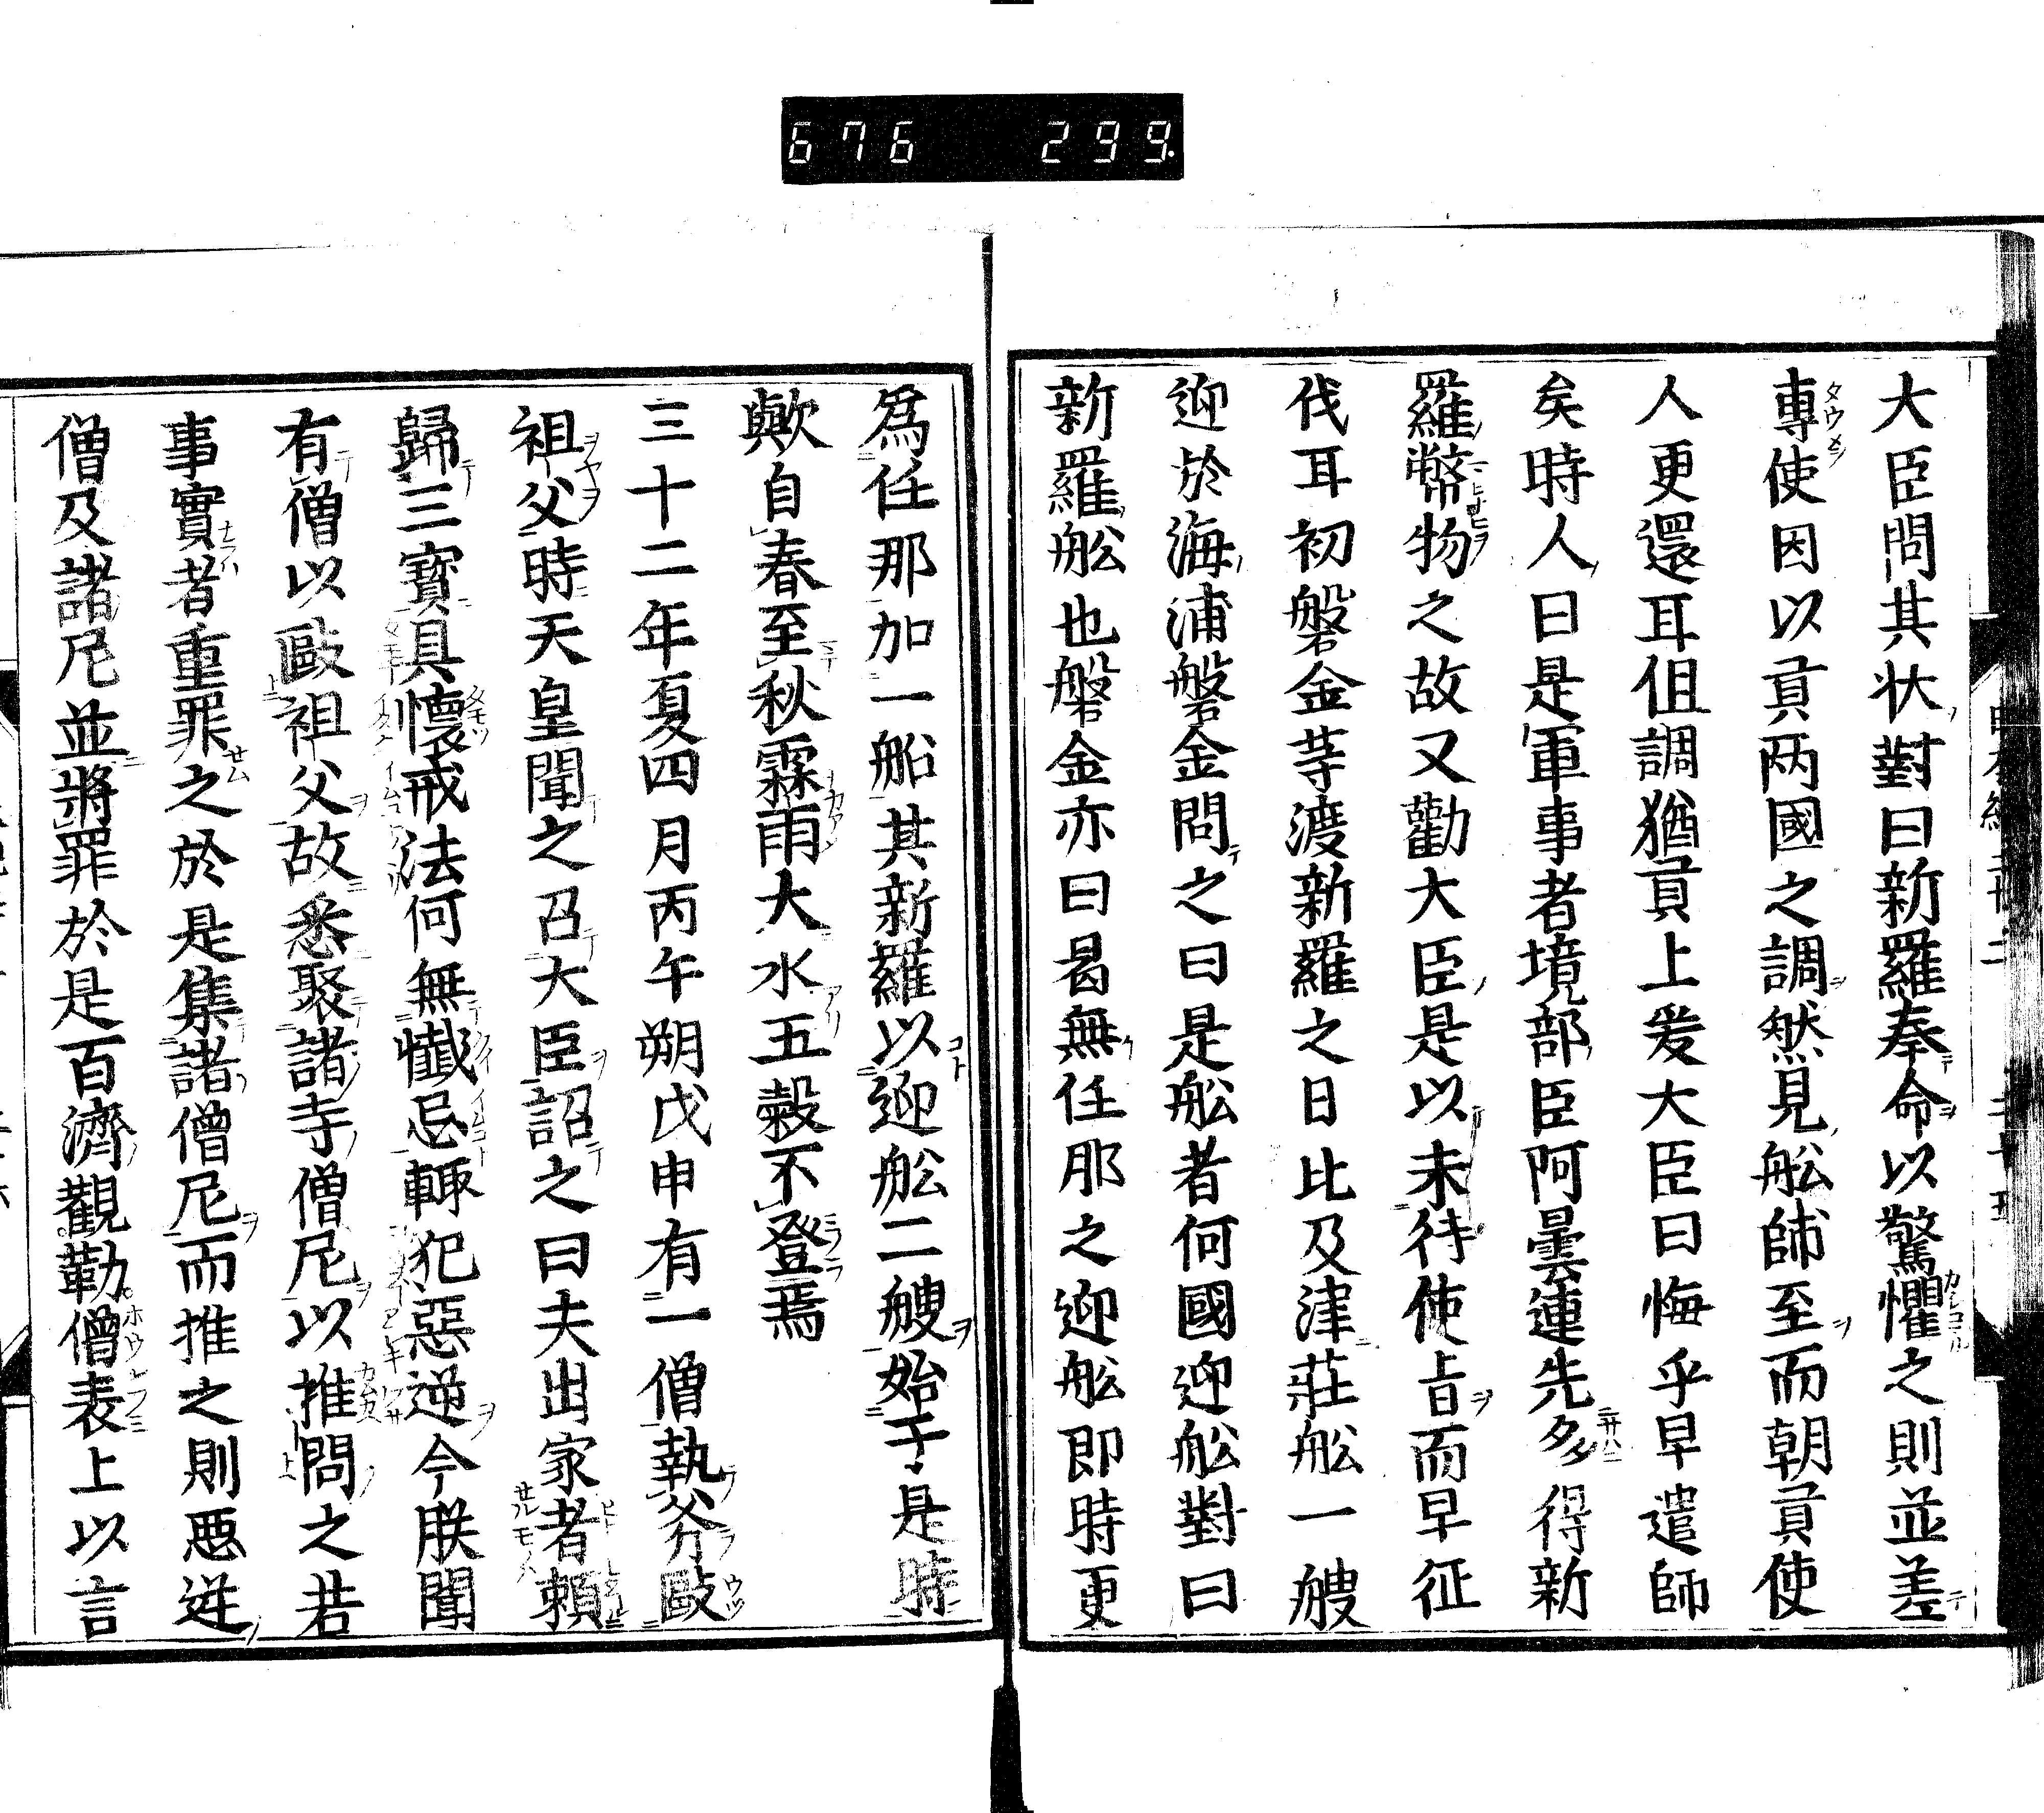 676 299
大臣問其状對曰新羅奉命以驚懼之則並差
專使因以貢两國之調然見舩師至而朝貢使
人更還耳但調猶貢上爰大臣曰悔乎早遣師
矣時人曰是軍事者境部臣阿曇連先多得新
羅幣物之故又勸大臣是以未待使旨而早征
伐耳初磐金等渡新羅之日比及津莊舩一艘
迎於海浦磐金問之曰是舩者何國迎舩對曰
新羅舩也磐金亦曰曷無任那之迎舩即時更
爲任那加一船其新羅以迎舩二艘始于是時
歟自春至秋霖雨大水五穀不登焉
三十二年夏四月丙午朔戊申有一僧執斧毆
祖父時天皇聞之召大臣詔之曰夫出家者頼
歸三寶具懷戒法何無懺忌輙犯惡逆今朕聞
有僧以毆祖父故悉聚諸寺僧尼以推問之若
事實者重罪之於是集諸僧尼而推之則惡逆
僧及諸尼並將罪於是百濟觀勒僧表上以言